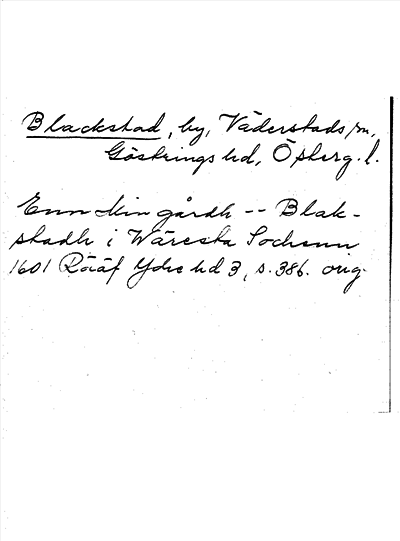 Blackstad, by, Väderstads sn,
Göstrings hd, Österg. l.
Enn Min gårdh -- Blak-
stadh i Wäresta Sochnn
1601 Rääf Ydre hd 3, s. 386. orig.